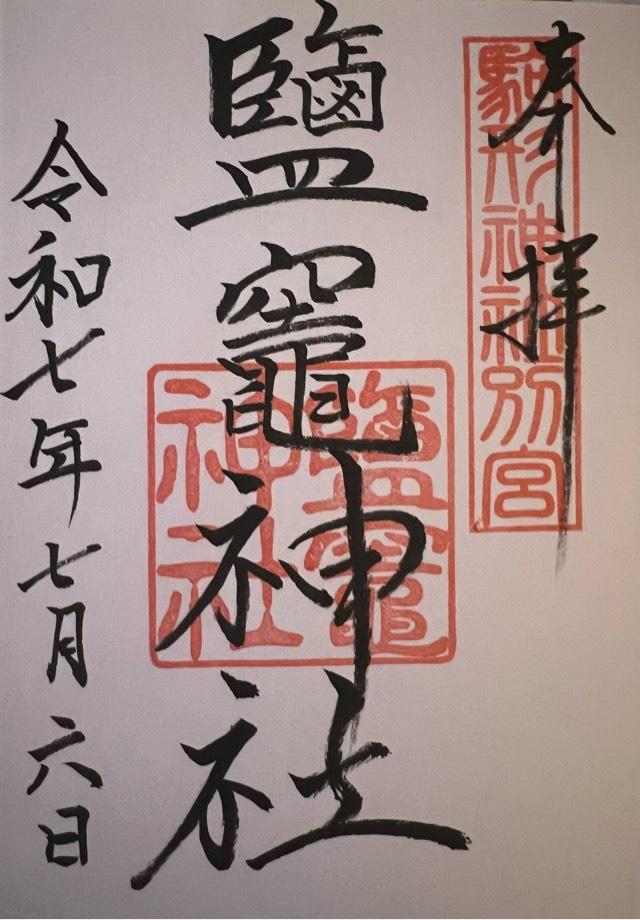 奉拝
駒形神社別宮
鹽竈神社
鹽竈神社
令和七年七月六日